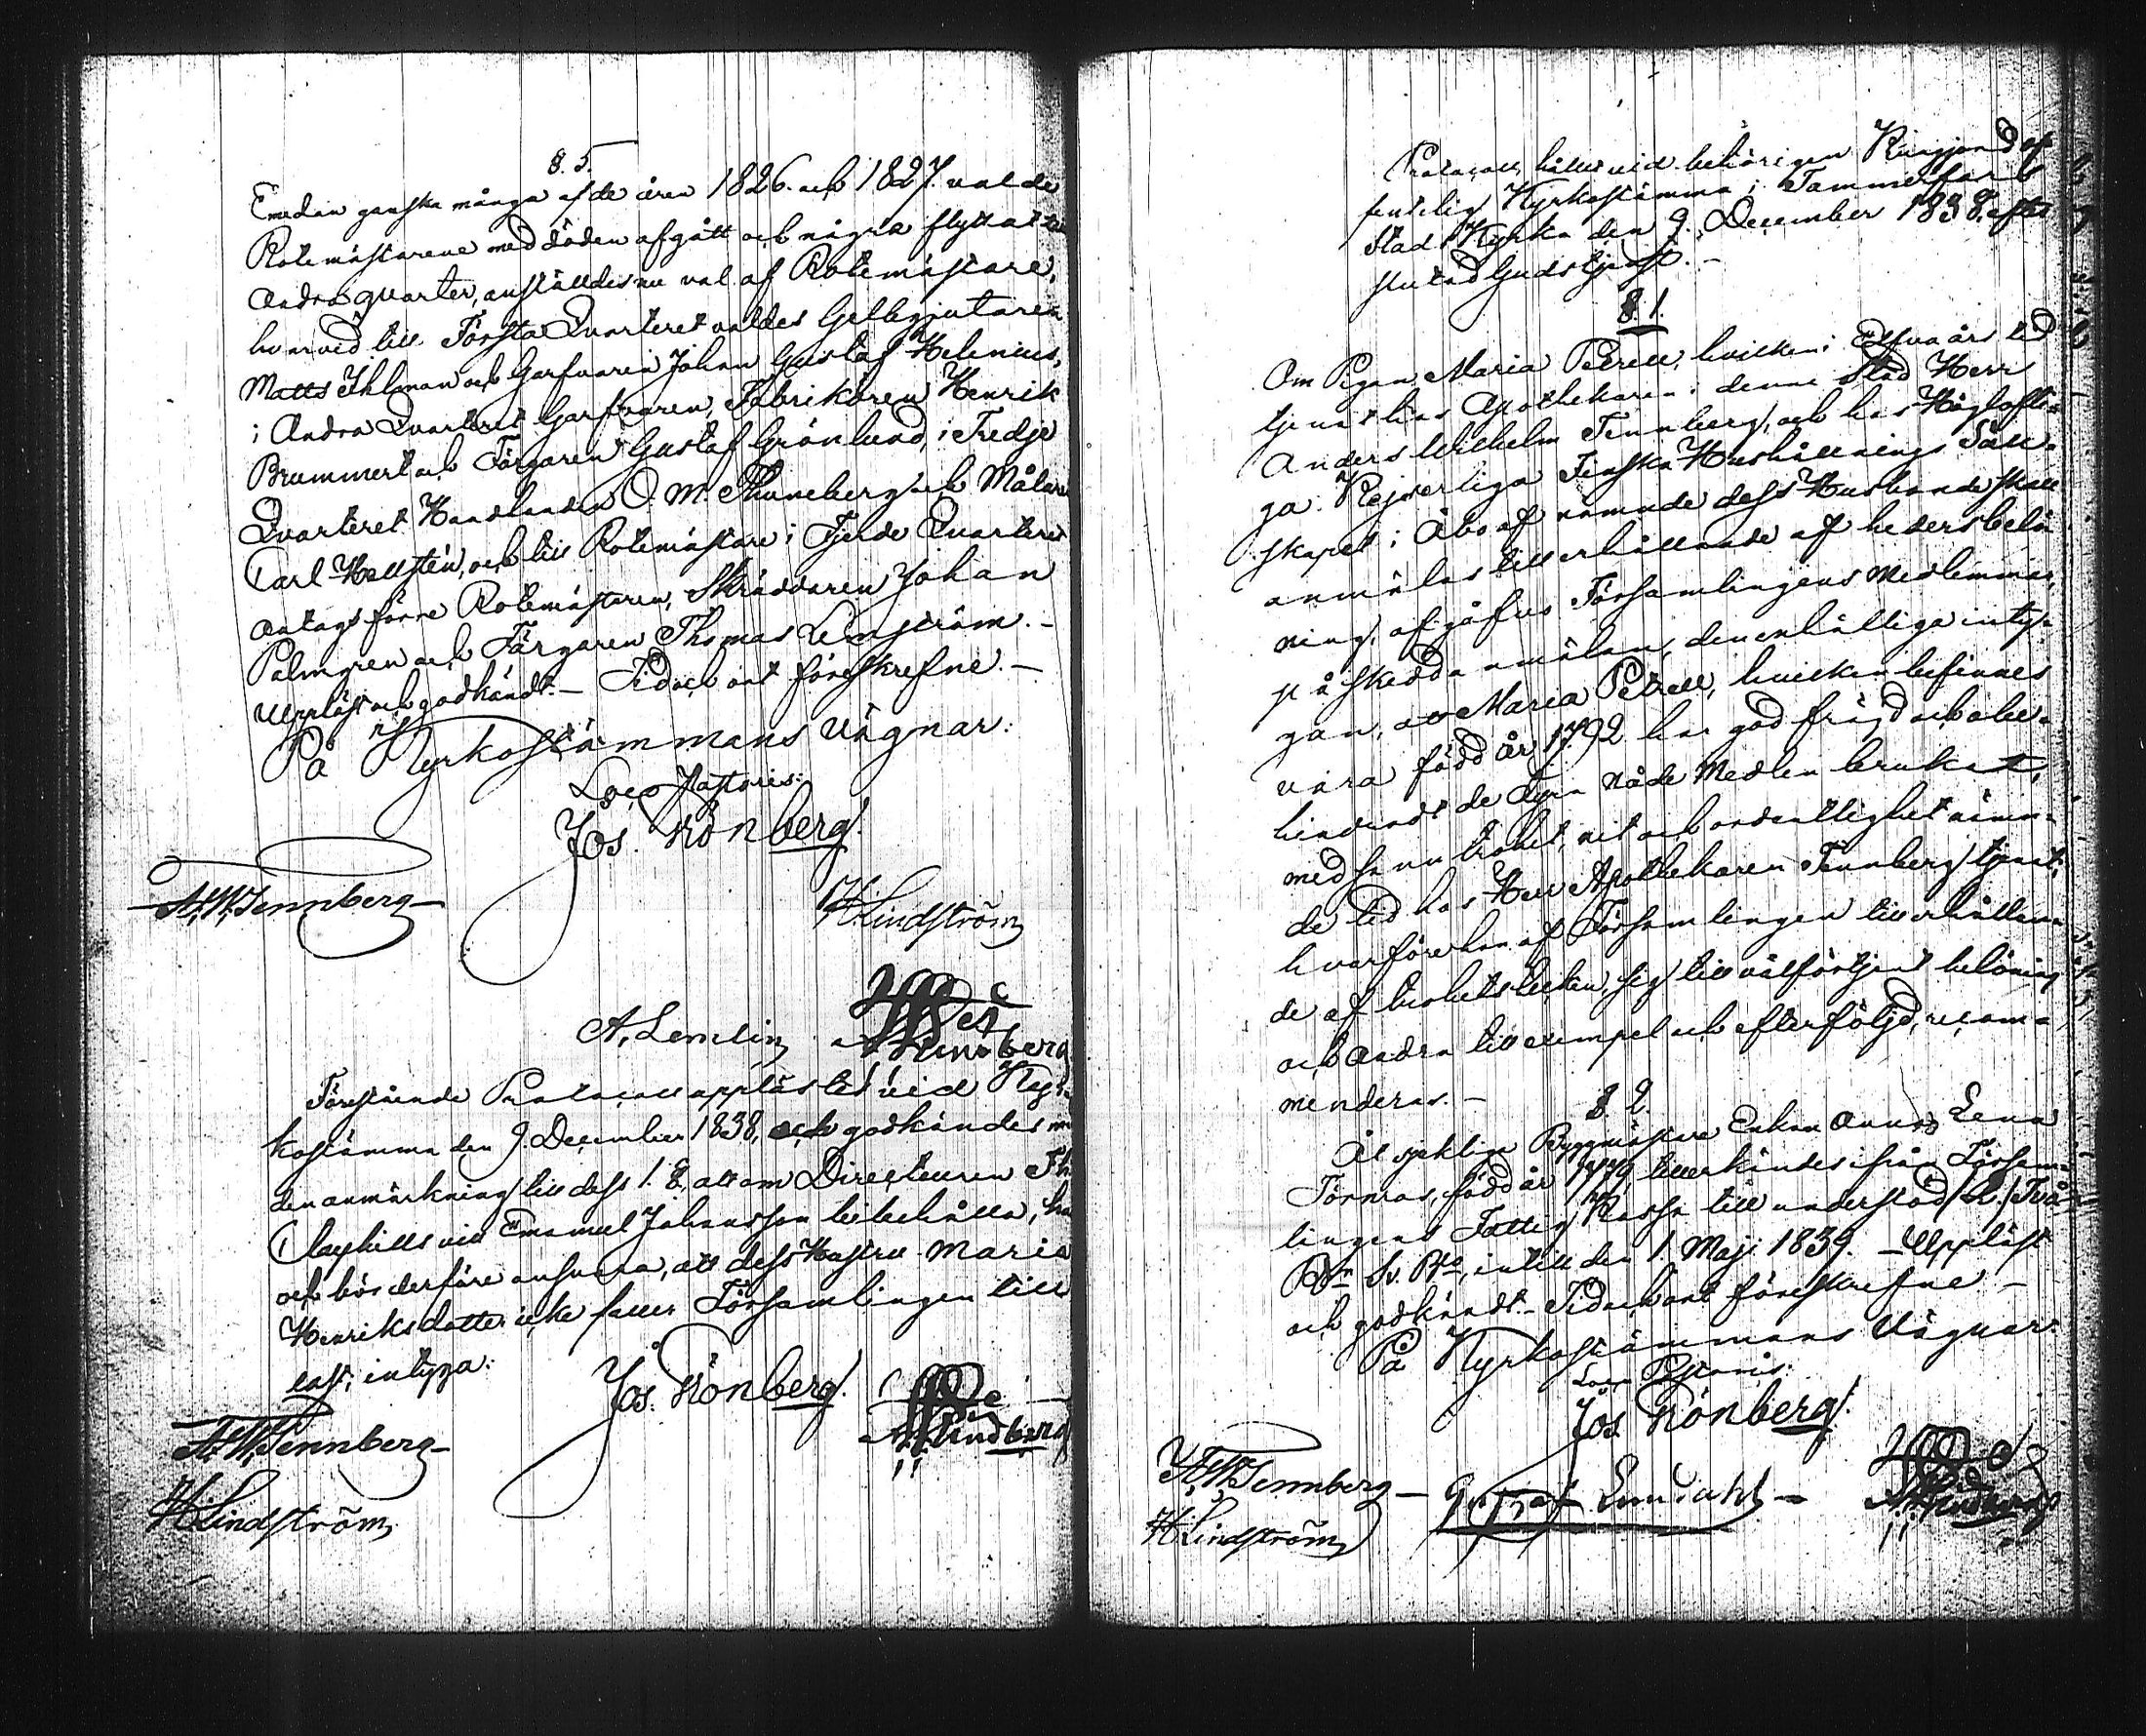 §. 5.
Emedan ganska många af de åren 1826. och 1827. valde
Rotemästarene med döden afgått och några flyttat till
andra qvarter, anställdes nu val af Rotemästare,
hvarvid till Första Qvarteret valdes Gelbgjutaren
Matts Ihlman och Garfvaren Johan Gustaf Helenius,
i Andra Qvarteret Garfvaren, Fabrikören Henrik
Brummert och Färgaren Gustaf Grönlund, i Tredje
Qvarteret Handlanden O. M. Thuneberg och Målaren
Carl Hellstén, och till Rotemästare i Fjerde Qvarteret
antogs förre Rotemästaren, Skräddaren Johan
Palmgren och Färgaren Thomas Engström. -
Uppläst och godkändt. - Tid och ort föreskrefne. -
På Kyrkostämmans vägnar:
Loco Pastoris:
Jos. Grönberg.
A. W. Tennberg
H. Lindström
A. Lemlin
Lindberg
Förestående Protocoll upplästes vid Kyr-
kostämma den 9. December 1838, och godkändes med
den anmärkning till dess 1. §., att om Directeuren
vill Emanuel Johansson bibehålla,
och bör derföre ansvara, att dess Hustru Maria
Henriksdotter icke faller Församlingen till
last; intyga:
Jos. Grönberg.
A. W. Tennberg
Lindberg
H. Lindström
Protocoll, hållet vid behörigen kungjord of-
fentelig Kyrkostämma i Tammerfors
Stads Kyrka den 9. December 1838. efter
slutad Gudstjenst. -
§. 1.
Om Pigan Maria Petrell, hvilken i Elfva års tid
tjenat hos Apothekaren i denne Stad Herr
Anders Wilhelm Tennberg, och hos Höglofli-
ga Kejserliga Finska Hushållnings Säll-
skapet i Åbo af nämnde dess Husbonde skall
anmälas till erhållande af hedersbelö-
ning, afgåfvo Församlingens Medlemmar,
på skedd anmälan, den enhälliga inty-
gan, att Maria Petrell, hvilken befinnes
vara född år 1792. har god frägd och obe-
hindradt de dyra Nåde Medlen brukat,
med sann trohet, nit och ordentlighet nämn-
de tid hos Herr Apothekaren Tennberg tjenat;
hvarföre hon af Församlingen till erhållan-
de af trohetstecken, sig till välförtjent belöning
och andra till exempel och efterföljd, recom-
menderas. -
§ 2.
Ålsjuklige Byggmästare Enkan Anna Lena
Törnroos, född år 1779, tillerkändes ifrån Försam-
lingens Fattig Kassa till understöd Två
Rdr Sv. Bko, intill den 1. Maji 1839. - Uppläst
och godkändt. - Tid och ort föreskrefne -
På Kyrkostämmans Vägnar:
Loco Pastoris:
Jos. Grönberg.
A. W. Tennberg
Gustaf Lundahl
H. Lindström